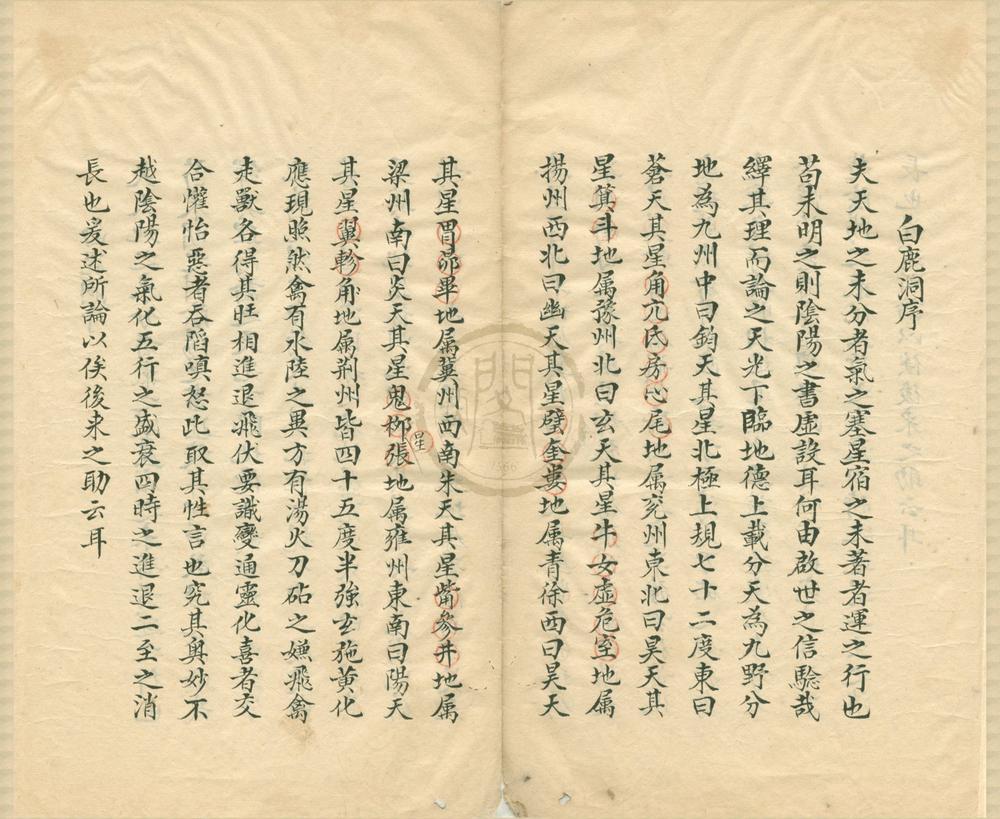 白鹿洞序
夫天地之未分者氣之塞星宿之未著者運之行也
苟未明之則陰陽之書虛設耳何由啟世之信驗哉
繹其理而論之天光下臨地德上載分天為九野分
地為九州中曰鈞天其星北極上規七十二度東曰
蒼天其星角亢氐房心尾地属兖州東北曰昊天其
星箕斗地属豫州北曰玄天其星牛女虛危室地属
揚州西北曰幽天其星璧奎婁地属青徐西曰昊天
其星胃昴畢地属冀州西南朱天其星觜參井地属
梁州南曰炎天其星鬼柳星張地属雍州東南曰陽天
其星翼軫角地属荆州皆四十五度半強玄施黄化
應現照然禽有水陸之異方有湯火刀砧之嫌飛禽
走獸各得其旺相進退飛伏要識變通靈化喜者交
合懽怡惡者吞啗嗔怒此取其性言也究其奥妙不
越陰陽之氣化五行之盛衰四時之進退二至之消
長也爰述所論以俟後来之助云耳
1566